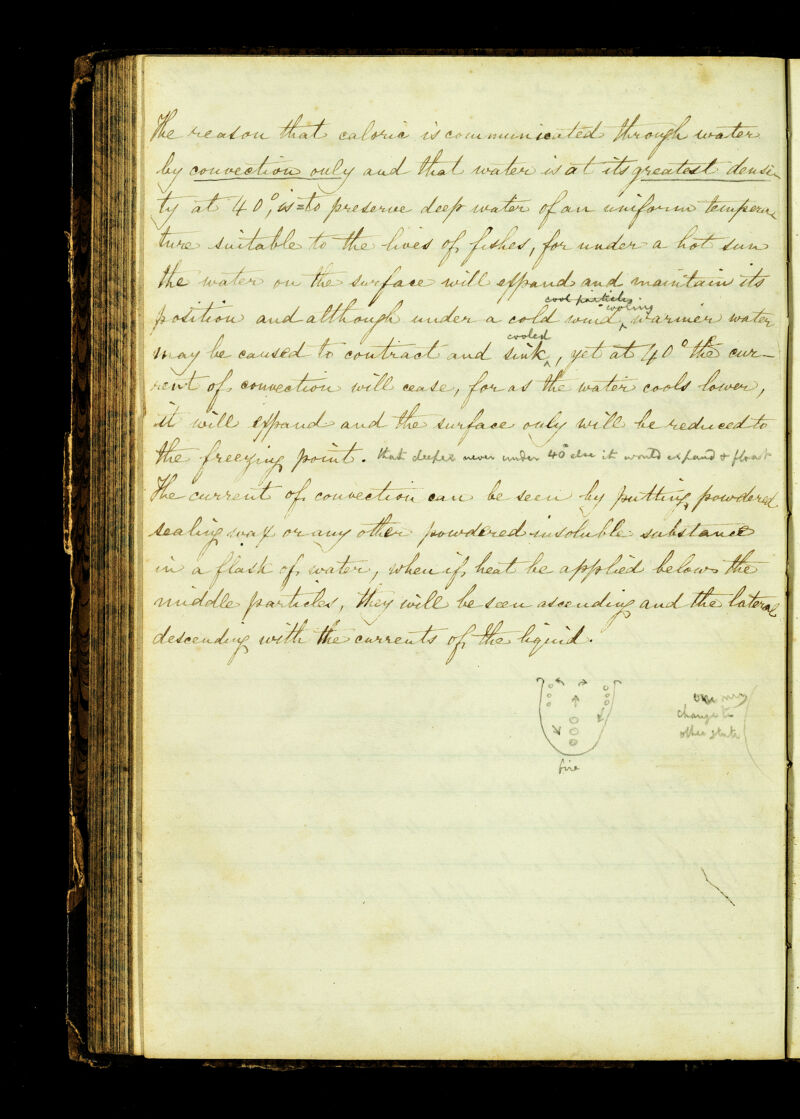 The reason that caloric is communicated through water
by convection only and that water is at its greatest densi-
ty at 40°, is = to preserve deep water of an uniform tempera-
ture suitable to the lives of fishes, for under a hot sun
the water on the surface will expand and maintain its
cool particles
cooling
position and although under a cold wind, warmer water
cooled
may be caused to contract and sink, yet at 40° the cur-
rent of convection will cease, for as the water cools lower,
it will expand and the surface only will be reduced to
the freezing point. that deeper never under 40° else it would expand & float
The current of convection can be seen by putting powdered
sealing wax or any other powdered insoluble substance
in a flask of water, when if heat be applied below the
middle particles, they will be seen ascending and the lateral
descending with the currents of the liquid.
one may
change to
other state
fire